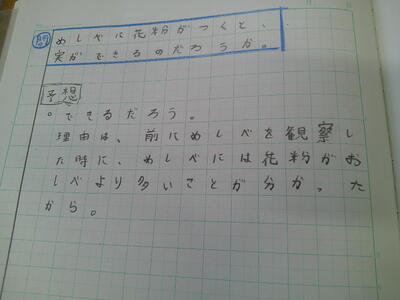 問 めしべに花粉がつくと、
実ができるのだろうか。
予想
○できるだろう。
理由は、前にめしべを観察し
た時に、めしべには花粉がお
しべより多いことが分かった
から。